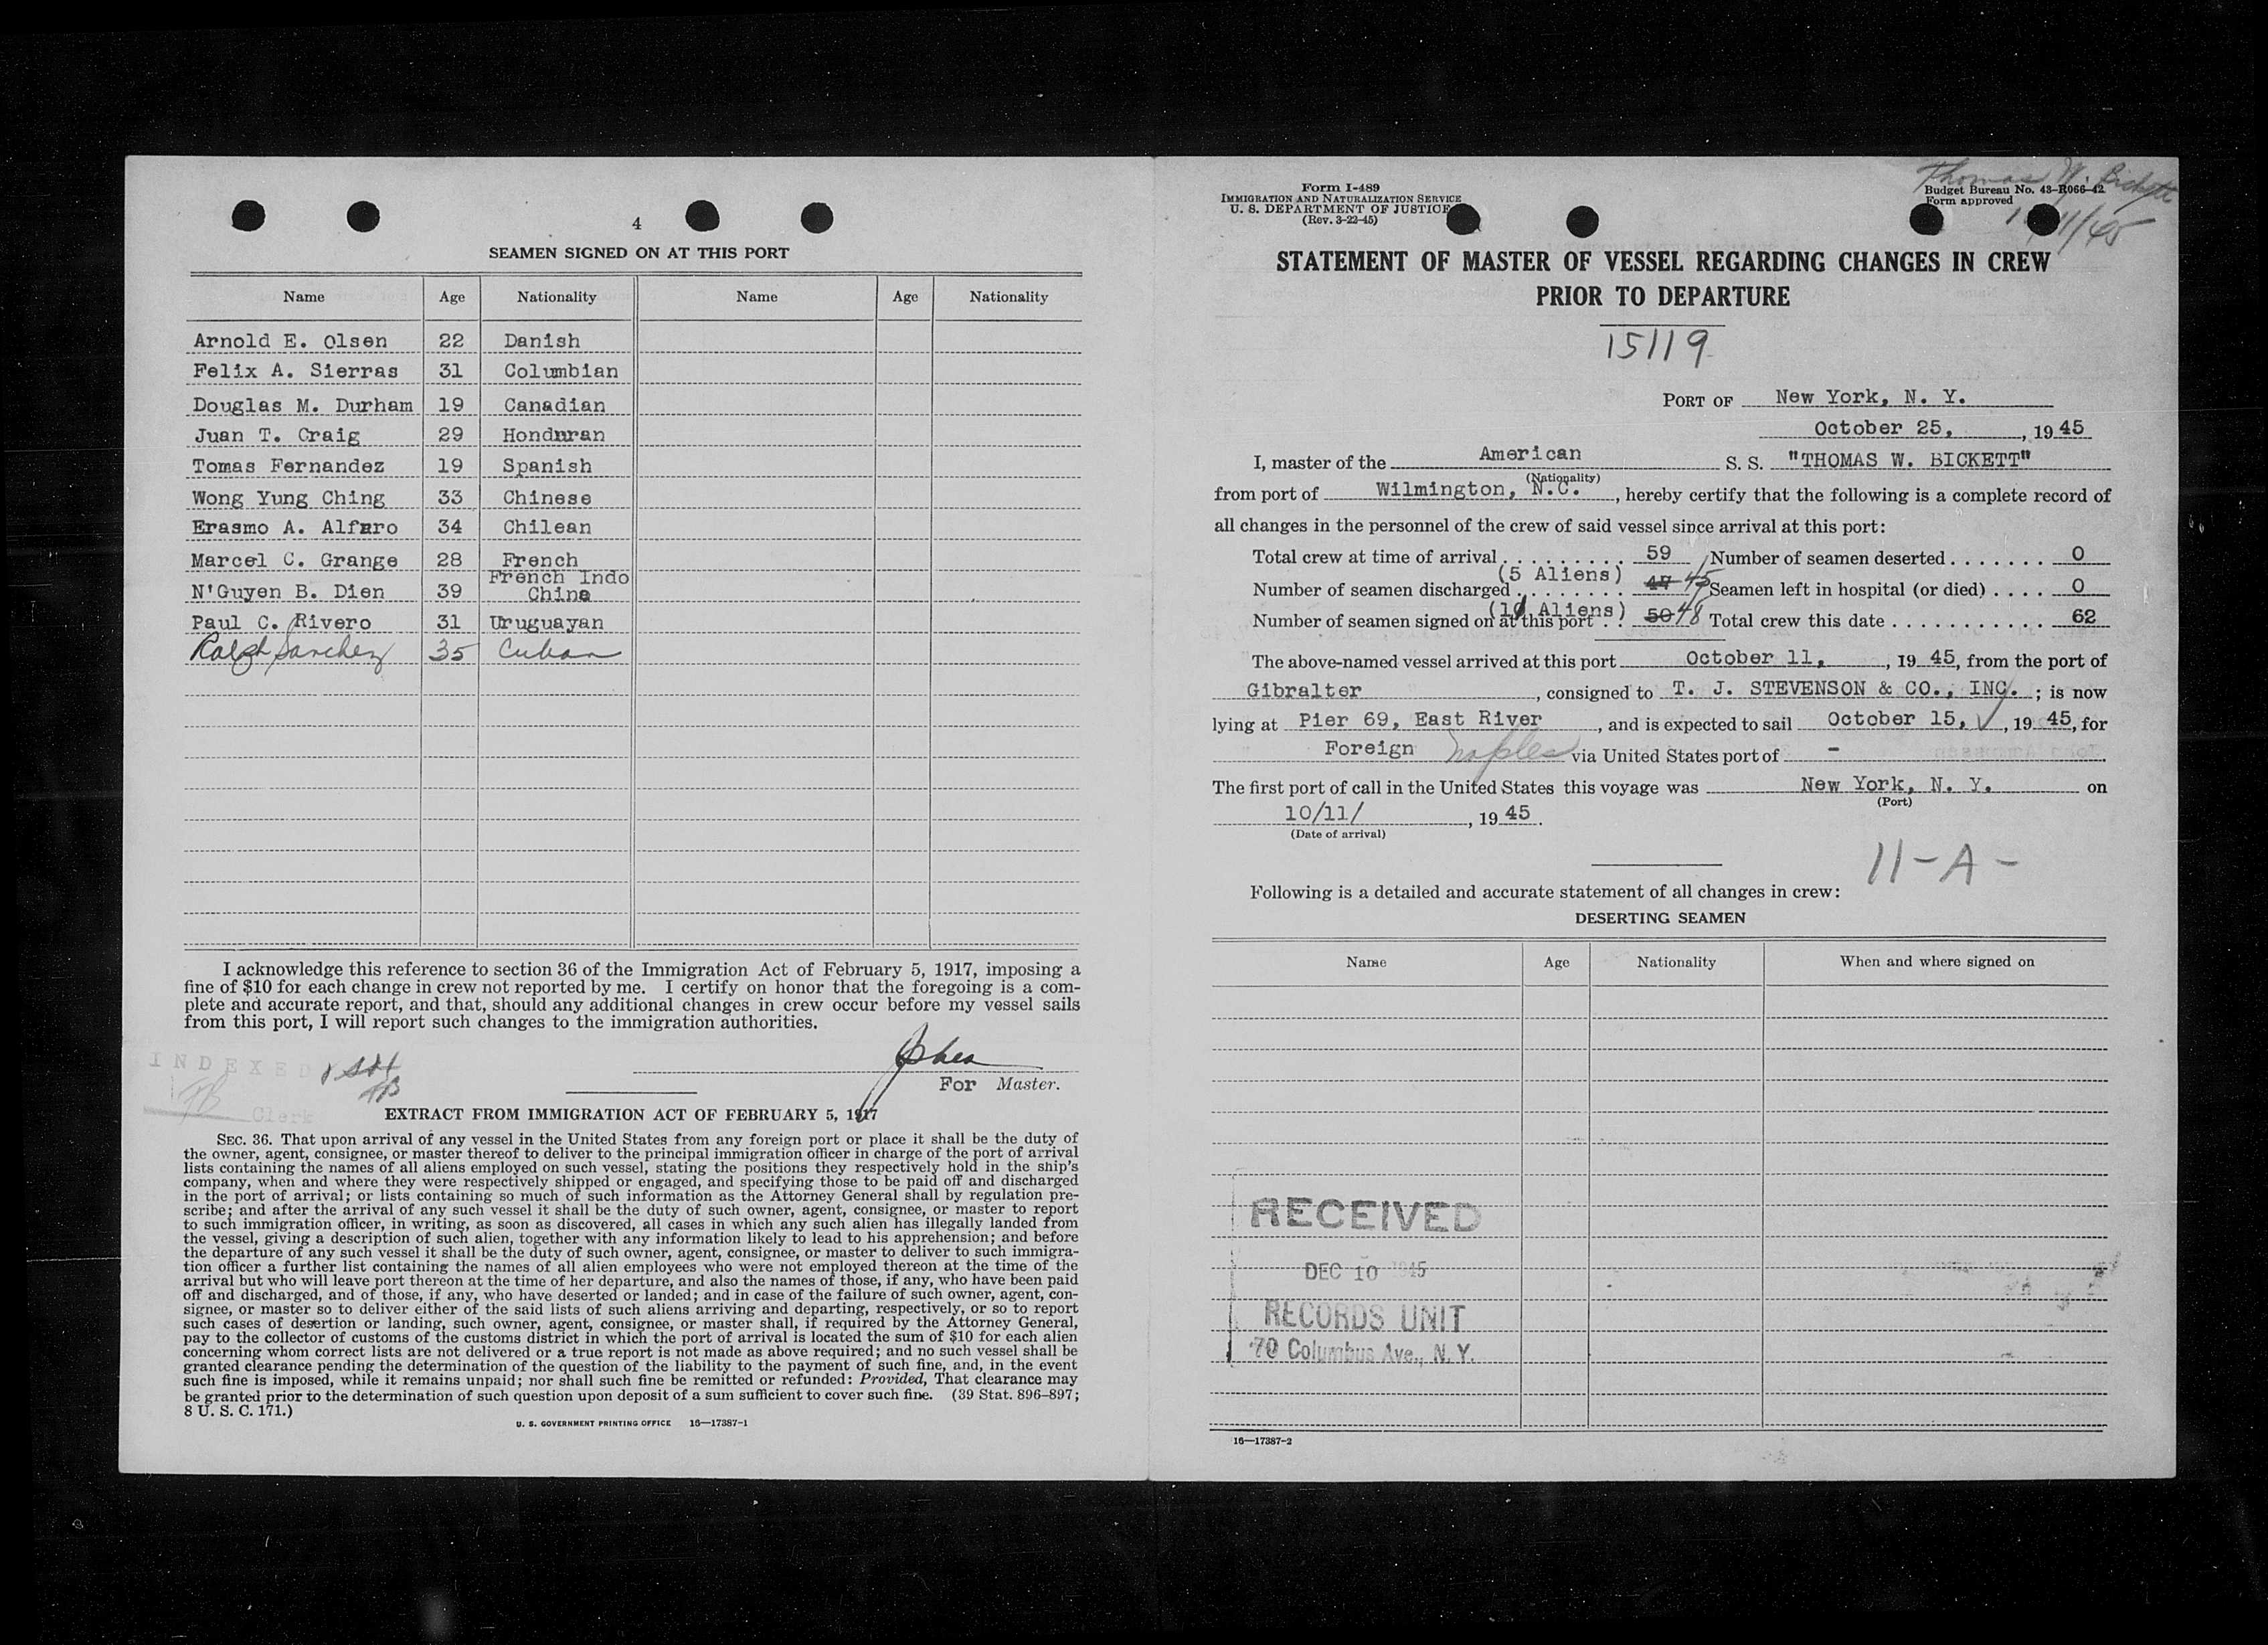 4
SEAMEN SIGNED ON AT THIS PORT
Name Age Nationality Name Age Nationality
Arnold E. Olsen 22 Danish
Felix A. Sierras 31 Columbian
Douglas M. Durham 19 Canadian
Juan T. Craig 29 Honduran
Tomas Fernandez 19 Spanish
Wong Yung Ching 33 Chinese
Erasmo A. Alfaro 34 Chilean
Marcel C. Grange 28 French
N'Guyen B. Dien 39 French Indo China
Paul C. Rivero 31 Uruguayan
Ralph Sanchez 35 Cuban
I acknowledge this reference to section 36 of the Immigration Act of February 5, 1917, imposing a
fine of $10 for each change in crew not reported by me. I certify on honor that the foregoing is a com-
plete and accurate report, and that, should any additional changes in crew occur before my vessel sails
from this port, I will report such changes to the immigration authorities.
INDEXED
Clerk
For Master.
EXTRACT FROM IMMIGRATION ACT OF FEBRUARY 5, 1917
SEC. 36. That upon arrival of any vessel in the United States from any foreign port or place it shall be the duty of
the owner, agent, consignee, or master thereof to deliver to the principal immigration officer in charge of the port of arrival
lists containing the names of all aliens employed on such vessel, stating the positions they respectively hold in the ship's
company, when and where they were respectively shipped or engaged, and specifying those to be paid off and discharged
in the port of arrival; or lists containing so much of such information as the Attorney General shall by regulation pre-
scribe; and after the arrival of any such vessel it shall be the duty of such owner, agent, consignee, or master to report
to such immigration officer, in writing, as soon as discovered, all cases in which any such alien has illegally landed from
the vessel, giving a description of such alien, together with any information likely to lead to his apprehension; and before
the departure of any such vessel it shall be the duty of such owner, agent, consignee, or master to deliver to such immigra-
tion officer a further list containing the names of all alien employees who were not employed thereon at the time of the
arrival but who will leave port thereon at the time of her departure, and also the names of those, if any, who have been paid
off and discharged, and of those, if any, who have deserted or landed; and in case of the failure of such owner, agent, con-
signee, or master so to deliver either of the said lists of such aliens arriving and departing, respectively, or so to report
such cases of desertion or landing, such owner, agent, consignee, or master shall, if required by the Attorney General,
pay to the collector of customs of the customs district in which the port of arrival is located the sum of $10 for each alien
concerning whom correct lists are not delivered or a true report is not made as above required; and no such vessel shall be
granted clearance pending the determination of the question of the liability to the payment of such fine, and, in the event
such fine is imposed, while it remains unpaid; nor shall such fine be remitted or refunded: Provided, That clearance may
be granted prior to the determination of such question upon deposit of a sum sufficient to cover such fine. (39 Stat. 896–897;
8 U. S. C. 171.)
U. S. GOVERNMENT PRINTING OFFICE 16—17387-1
Form I-489
IMMIGRATION AND NATURALIZATION SERVICE
U. S. DEPARTMENT OF JUSTICE
(Rev. 3-22-45)
Thomas W. Bickett
Budget Bureau No. 43-R066-42
Form approved
11/45
STATEMENT OF MASTER OF VESSEL REGARDING CHANGES IN CREW
PRIOR TO DEPARTURE
15119
PORT OF New York, N. Y.
October 25, , 1945
I, master of the American S. S. "THOMAS W. BICKETT"
(Nationality)
from port of Wilmington, N.C. , hereby certify that the following is a complete record of
all changes in the personnel of the crew of said vessel since arrival at this port:
Total crew at time of arrival 59 Number of seamen deserted 0
Number of seamen discharged (5 Aliens) 47 45 Seamen left in hospital (or died) 0
Number of seamen signed on at this port (11 Aliens) 50 48 Total crew this date 62
The above-named vessel arrived at this port October 11, , 1945, from the port of
Gibralter , consigned to T. J. STEVENSON & CO., INC. ; is now
lying at Pier 69, East River , and is expected to sail October 15, , 1945, for
Foreign Naples via United States port of -
The first port of call in the United States this voyage was New York, N. Y. on
(Port)
10/11/ , 1945.
(Date of arrival)
11-A-
Following is a detailed and accurate statement of all changes in crew:
DESERTING SEAMEN
Name Age Nationality When and where signed on
RECEIVED
DEC 10 1945
RECORDS UNIT
70 Columbus Ave., N. Y.
16—17387-2